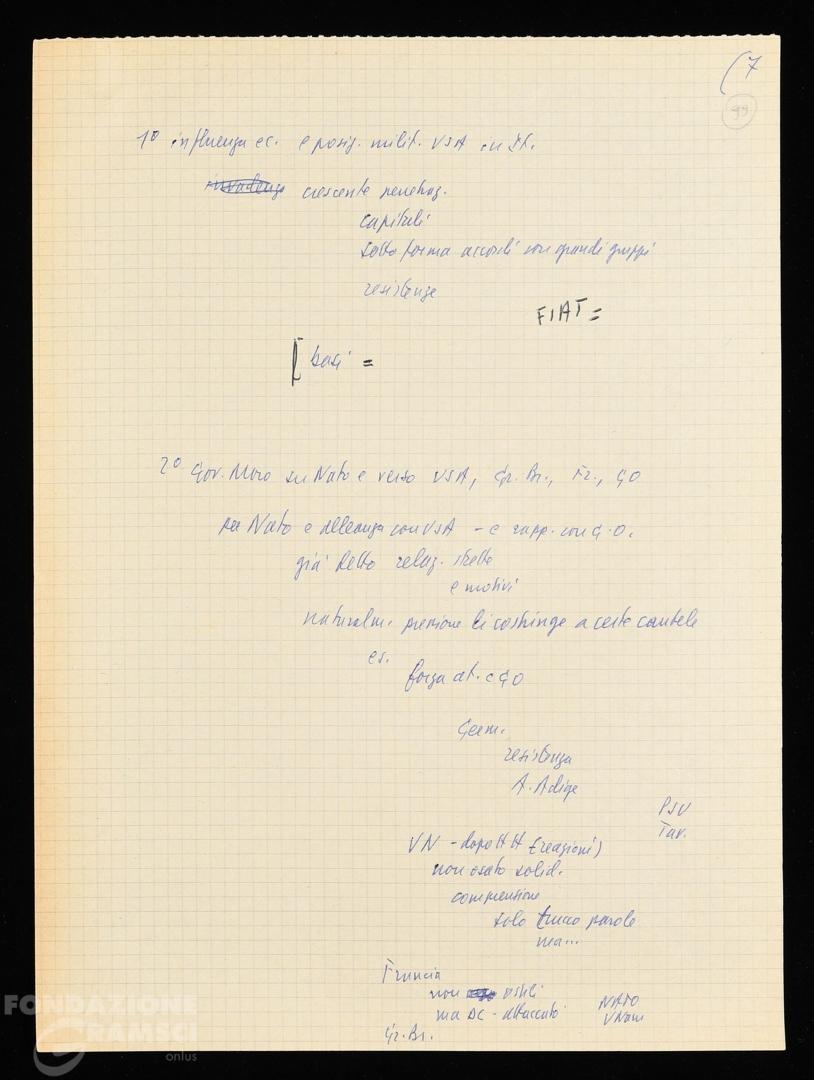 (7
99
1º influenza ec. e posiz. milit. USA in It.
invadenza crescente penetraz.
capitali
sotto forma accordi con grandi gruppi
resistenze
FIAT =
[ basi =
2º Gov. Moro su Nato e verso USA, Gr. Br., Fr., GO
su Nato e alleanza con USA - e rapp. con G.O.
già detto relaz. strette
e motivi
naturalm. pressione li costringe a certe cautele
es.
forza at. e GO
Germ.
resistenza
A. Adige
PSU
Tav.
VN - dopo HH (reazioni)
non osato solid.
comprensione
solo trucco parole
ma...
Francia
non ostili
ma DC - attaccato
NATO
VNam
Gr. Br.
FONDAZIONE
GRAMSCI
onlus